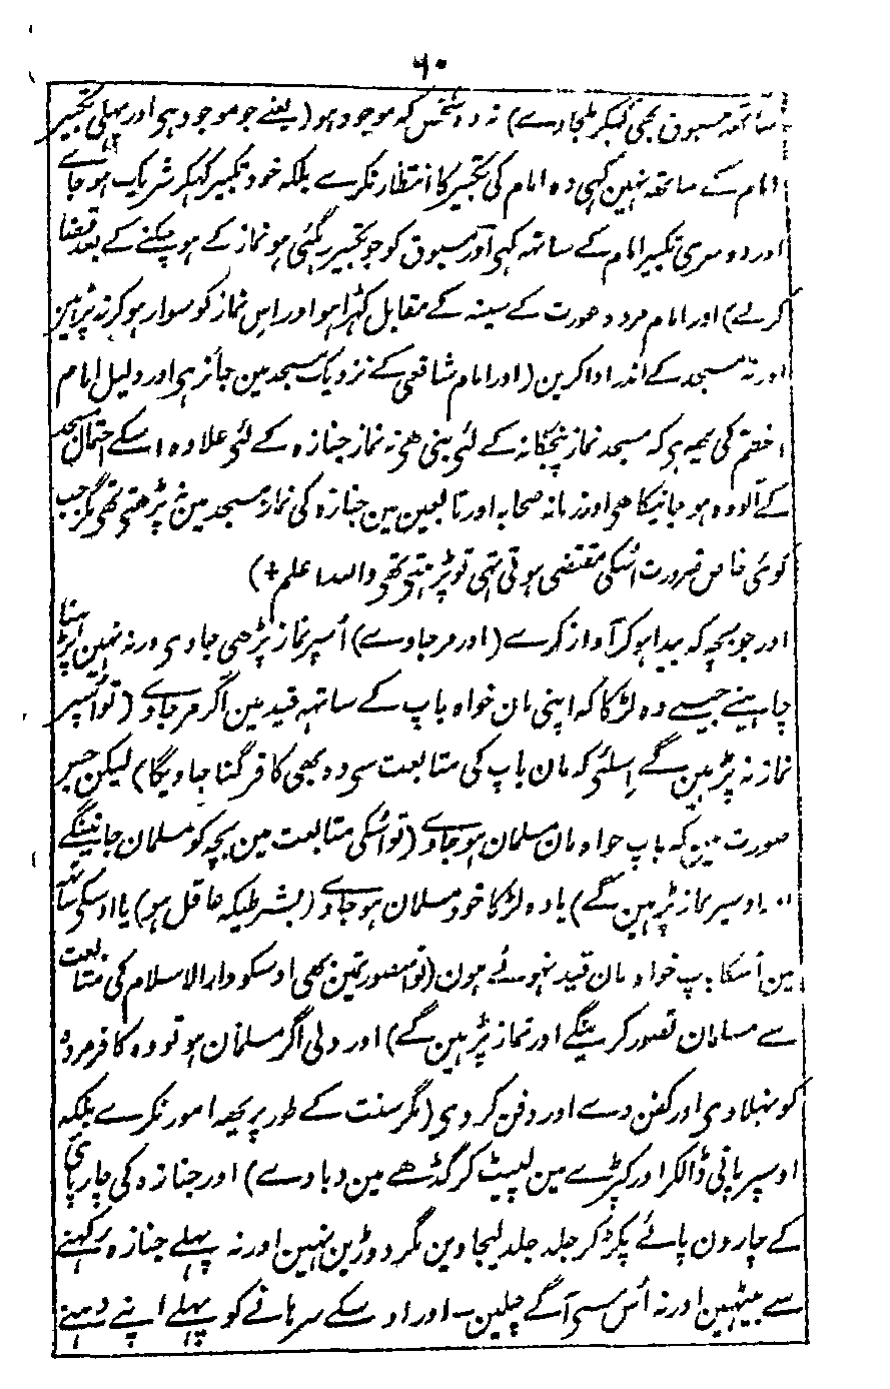 ۶۰
ساتھہ مسبوق بھی تکبیر کہکر ملجاوے) نہ وہ شخص کہ موجود ہو (یعنے جو موجود ہی اور پہلی تکبیر
امام کے ساتھہ نہین کہی وہ امام کی تکبیر کا انتظار نکرے بلکہ خود تکبیر کہکر شریک ہو جاے
اور دوسری تکبیر امام کے ساتہہ کہی اور مسبوق کو جو تکبیر رہگئی ہو نماز کے ہو چکنے کے بعد قضا
کرلے) اور امام مرد و عورت کے سینہ کے مقابل کہڑا ہو اور اس نماز کو سوار ہو کر نہ پڑہین
اور نہ مسجد کے اندر ادا کرین (اور امام شافعی کے نزدیک مسجد مین جائز ہی اور دلیل امام
اعظم کی یہہ ہی کہ مسجد نماز پنجگانہ کے لئی بنی ھی نہ نماز جنازہ کے لئی علاوہ اسکے احتمال مسجد
کے آلودہ ہو جانیکا ھی اور زمانہ صحابہ اور تابعین مین جنازہ کی نماز مسجد مین نہ پڑھتی تھی مگر جب
کوئی خاص ضرورت اسکی مقتضی ہوتی تہی تو پڑہتی تھی واللہ اعلم +)
اور جو بچہ کہ پیدا ہو کر آواز کرے (اور مرجاوے) اُسپر نماز پڑھی جاوی ورنہ نہین پڑہنا
چاہیئے جیسے وہ لڑکا کہ اپنی مان خواہ باپ کے ساتہہ قید مین اگر مرجاوے (تو اُسپر
نماز نہ پڑہین گے اِسلئی کہ مان باپ کی متابعت سی وہ بھی کافر گنا جاویگا) لیکن جس
صورت مین کہ باپ خواہ مان مسلمان ہو جاوے (تو اُسکی متابعت مین بچہ کو مسلمان جانینگے
اور اوسپر نماز پڑہین گے) یا وہ لڑکا خود مسلمان ہو جاوے (بشرطیکہ عاقل ہو) یا اوسکی ساتہہ
مین اُسکا باپ خواہ مان قید نہوئے ہون (تو اسصورتمین بھی اوسکو دارالاسلام کی متابعت
سے مسلمان تصور کرینگے اور نماز پڑہین گے) اور ولی اگر مسلمان ہو تو وہ کافر مردہ
کو نہلاوی اور کفن دے اور دفن کر دی (مگر سنت کے طور پر یہہ امور نکرے بلکہ
اوسپر پانی ڈالکر اور کپڑے مین لپیٹ کر گڈھے مین دبا دے) اور جنازہ کی چارپائی
کے چارون پائے پکڑ کر جلد جلد لیجاوین مگر دوڑین نہین اور نہ پہلے جنازہ رکہنے
سے بیٹہین اور نہ اُس سی آگے چلین – اور اوسکے سرہانے کو پہلے اپنے دہنے